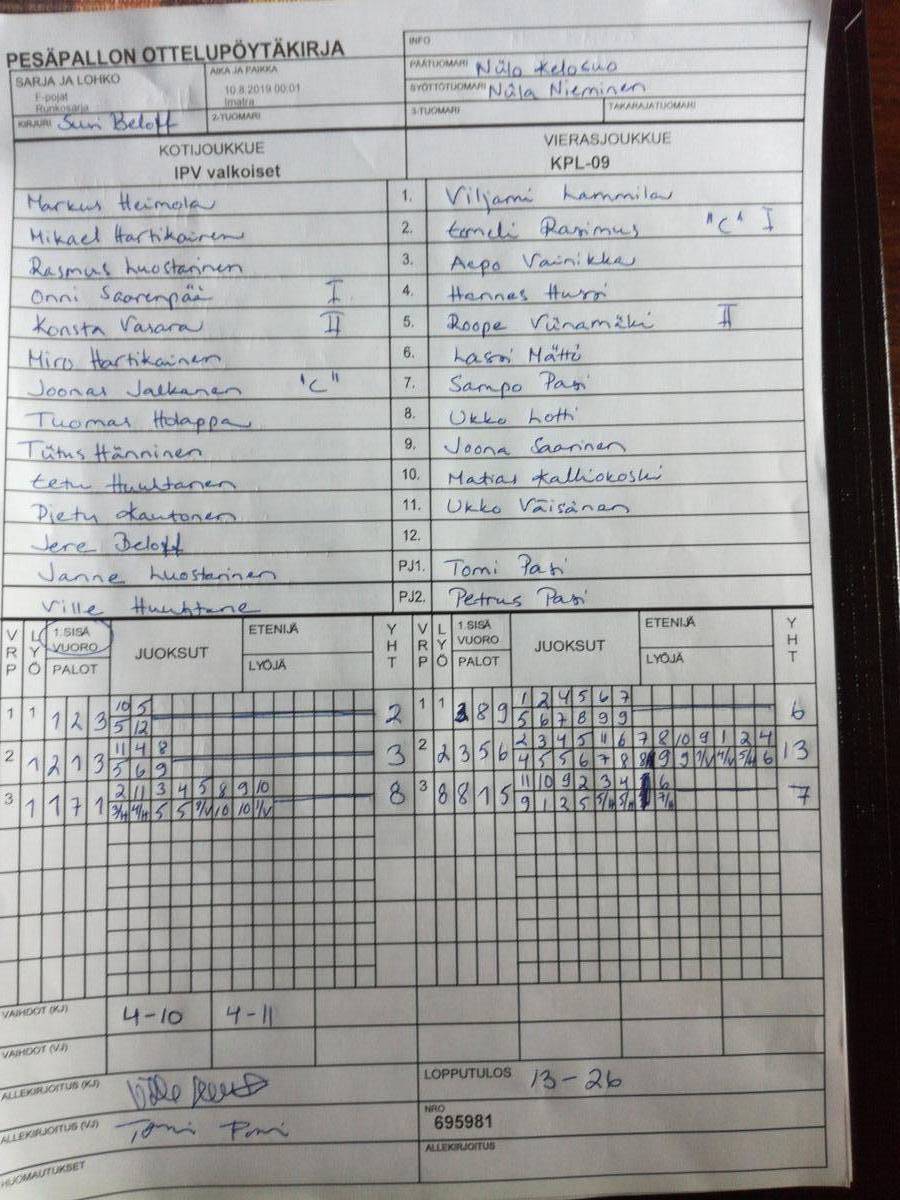 PESÄPALLON OTTELUPÖYTÄKIRJA
INFO
SARJA JA LOHKO
F-pojat
Runkosarja
AIKA JA PAIKKA
10.8.2019 00:01
Imatra
PÄÄTUOMARI Niilo Kelosuo
SYÖTTÖTUOMARI Niila Nieminen
KIRJURI Suvi Beloff
2-TUOMARI
3-TUOMARI
TAKARAJATUOMARI
KOTIJOUKKUE
IPV valkoiset
VIERASJOUKKUE
KPL-09
Markus Heimola 1. Viljami Lammila
Mikael Hartikainen 2. Eemeli Rasimus "C" I
Rasmus Luostarinen 3. Aapo Vainikka
Onni Saarenpää I 4. Hannes Hussi
Konsta Vasara II 5. Roope Viinamäki II
Miro Hartikainen 6. Lassi Mättö
Joonas Jalkanen "C" 7. Sampo Pasi
Tuomas Holappa 8. Ukko Lotti
Tiitus Hänninen 9. Joona Saarinen
Eetu Huuhtanen 10. Matias Kalliokoski
Pietu Kautonen 11. Ukko Väisänen
Jere Beloff 12.
Janne Luostarinen PJ1. Tomi Pasi
Ville Huuhtane PJ2. Petrus Pasi
VRP LYÖ 1.SISÄ VUORO PALOT JUOKSUT ETENIJÄ LYÖJÄ YHT VRP LYÖ 1.SISÄ VUORO PALOT JUOKSUT ETENIJÄ LYÖJÄ YHT
10 5 1 2 4 5 6 7
1 1 1 2 3 2 1 1 8 9 6
5 12 5 6 7 8 9 9
11 4 8 2 3 4 5 11 6 7 8 10 9 1 2 4
2 1 2 1 3 3 2 2 3 5 6 13
5 6 9 4 5 5 6 7 8 9 9 7/V 4/V 5/H 6
2 11 3 4 5 8 9 10 11 10 9 2 3 4 6
3 1 1 7 1 8 3 8 8 1 5 7
3/H 4/H 5 5 7/V 10 10 1/V 9 1 2 5 5/H 5/H 7/H
VAIHDOT (KJ) 4-10 4-11
VAIHDOT (VJ)
ALLEKIRJOITUS (KJ)
LOPPUTULOS 13-26
ALLEKIRJOITUS (VJ) Tomi Pasi
NRO
695981
HUOMAUTUKSET
ALLEKIRJOITUS